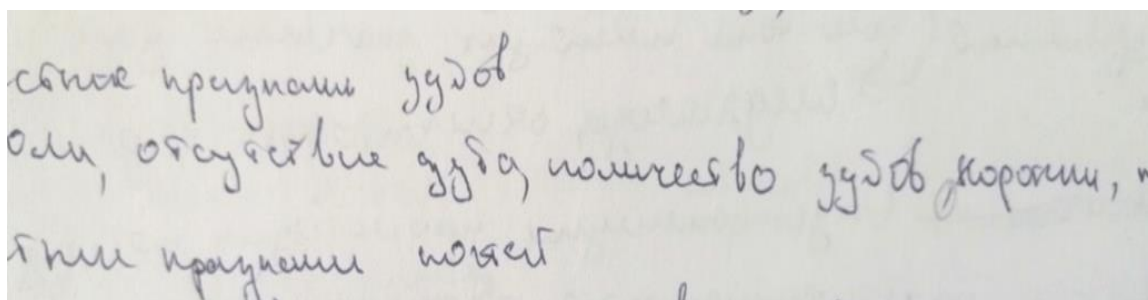 стные признаки зубов
оли, отсутствие зуба, количество зубов, коронки,
тные признаки ногтей